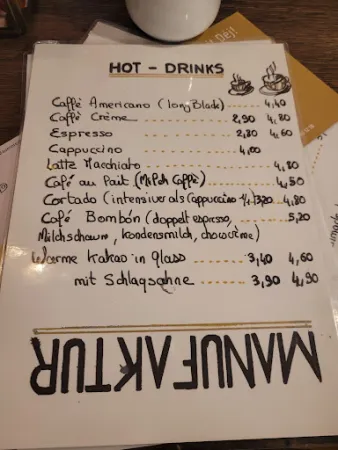 HOT - DRINKS
Caffè Americano (long Black) 4,40
Caffè Crème 2,90 4,80
Espresso 2,80 4,60
Cappuccino 4,00
Latte Macchiato 4,80
Café au Lait (Milch Caffè) 4,50
Cortado (intensiver als Cappuccino 4,80
Café Bombón (doppelt espresso, 5,20
Milchschaum, Kondensmilch, chococrème)
Warme Kakao in glass 3,40 4,60
mit Schlagsahne 3,90 4,90
MANUFAKTUR